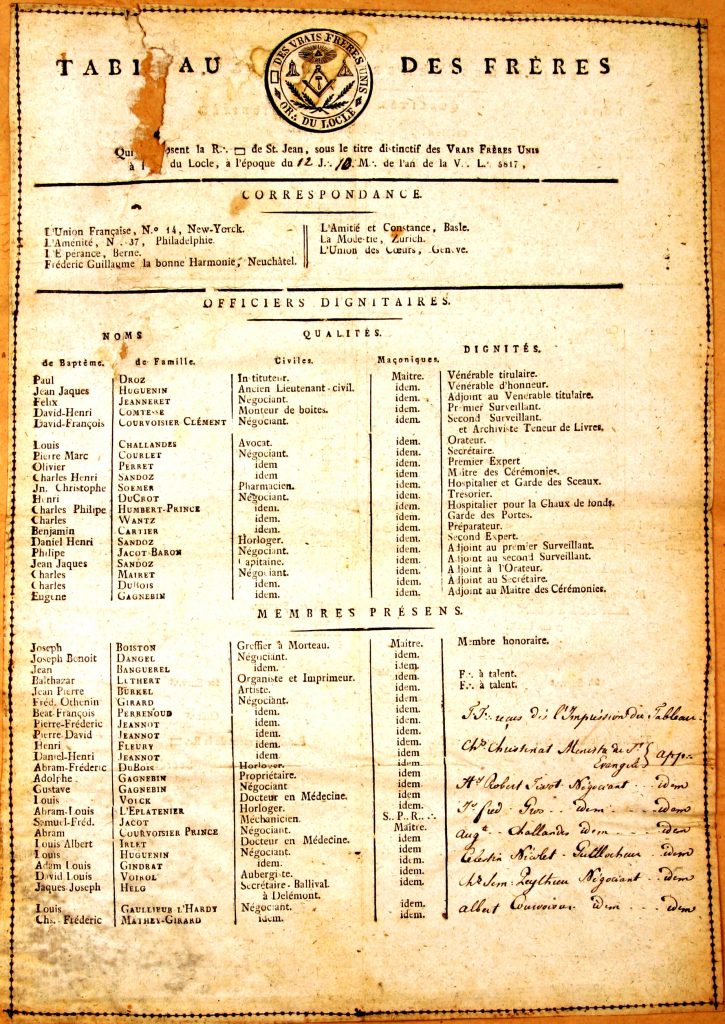 TABL AU DES FRÈRES
DES VRAIS FRERES UNIS
OR∴ DU LOCLE
Qui osent la R∴ de St. Jean, sous le titre distinctif des VRAIS FRÈRES UNIS
à du Locle, à l'époque du 12 J∴ 10 M∴ de l'an de la V∴ L∴ 5817,
CORRESPONDANCE.
L'Union Française, N.º 14, New-Yorck.
L'Aménité, N . 37, Philadelphie.
L'E perance, Berne.
Fréderic Guillaume la bonne Harmonie, Neuchâtel.
L'Amitié et Constance, Basle.
La Mode tie, Zurich.
L'Union des Cœurs, Genève.
OFFICIERS DIGNITAIRES.
NOMS QUALITÉS. DIGNITÉS.
de Baptême. de Famille. Civiles. Maçoniques.
Paul DROZ In tituteur. Maitre. Vénérable titulaire.
Jean Jaques HUGUENIN Ancien Lieutenant-civil. idem. Vénérable d'honneur.
Felix JEANNERET Négociant. idem. Adjoint au Venérable titulaire.
David-Henri COMTESSE Monteur de boites. idem. Premier Surveillant.
David-François COURVOISIER CLÉMENT Négociant. idem. Second Surveillant.
et Archiviste Teneur de Livres.
Louis CHALLANDES Avocat. idem. Orateur.
Pierre Marc COURLET Négociant. idem. Secrétaire.
Olivier PERRET idem idem. Premier Expert
Charles Henri SANDOZ idem idem. Maitre des Cérémonies.
Jn. Christophe SOEMER Pharmacien. idem. Hospitalier et Garde des Sceaux.
Henri DUCROT Négociant. idem. Trésorier.
Charles Philipe HUMBERT-PRINCE idem. idem. Hospitalier pour la Chaux de fonds.
Charles WANTZ idem. idem. Garde des Portes.
Benjamin CARTIER idem. idem. Préparateur.
Daniel Henri SANDOZ Horloger. idem. Second Expert.
Philipe JACOT-BARON Négociant. idem. Adjoint au premier Surveillant.
Jean Jaques SANDOZ Capitaine. idem. Adjoint au second Surveillant.
Charles MAIRET Négociant. idem. Adjoint à l'Orateur.
Charles DUBOIS idem. idem. Adjoint au Secrétaire.
Eugène GAGNEBIN idem. idem. Adjoint au Maitre des Cérémonies.
MEMBRES PRÉSENS.
Joseph BOISTON Greffier à Morteau. Maitre. Membre honoraire.
Joseph Benoit DANGEL Négociant. idem.
Jean BANGUEREL idem. idem.
Balthazar LUTHERT Organiste et Imprimeur. idem. F∴ à talent.
Jean Pierre BURKEL Artiste. idem. F∴ à talent.
Fréd. Othenin GIRARD Négociant. idem.
Beat-François PERRENOUD idem. idem.
Pierre-Fréderic JEANNOT idem. idem.
Pierre David JEANNOT idem. idem.
Henri FLEURY idem. idem.
Daniel-Henri JEANNOT idem. idem.
Abram-Fréderic DUBOIS Horloger. idem.
Adolphe GAGNEBIN Propriétaire. idem
Gustave GAGNEBIN Négociant idem.
Louis VOUCK Docteur en Médecine. idem.
Abram-Louis L'EPLATENIER Horloger. idem.
Samuel-Fréd. JACOT Méchanicien. S.. P.. R.. ∴
Abram COURVOISIER PRINCE Négociant. Maître.
Louis Albert IRLET Docteur en Médecine. idem
Louis HUGUENIN Négociant. idem.
Adam Louis GINDRAT idem. idem.
David Louis VOIROL Aubergi te. idem.
Jaques Joseph HELG Secrétaire-Ballival.
à Delémont. idem.
Louis GAULLIEUR L'HARDY Négociant. idem.
Ch. Frédéric MATHEY-GIRARD idem. idem.
F F∴ recus dès l'Impression du Tableau
Chs Christinat Ministre du St Evangile } app
Hy Robert Tissot Négociant idem
fred Gros idem idem
Augte Challandes idem idem
Celestin Nicolet Guillocheur idem
Négociant idem
Albert Courvoisier idem idem